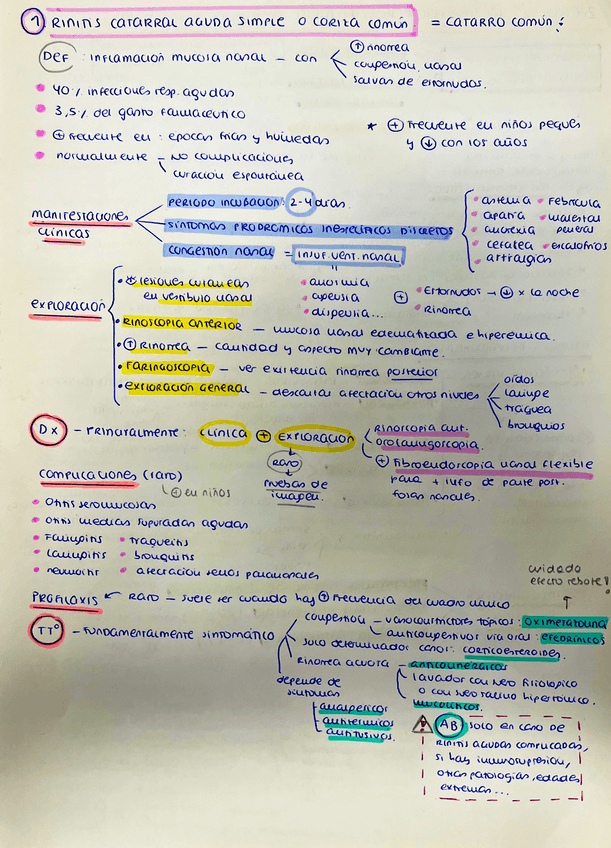 1 RINITIS CATARRAL AGUDA SIMPLE O CORIZA COMÚN = CATARRO COMÚN:
DEF: inflamación mucosa nasal – con
↑ rinorrea
congestión nasal
salvas de estornudos.
• 40% infecciones resp. agudas
• 3,5% del gasto farmacéutico
• ⊕ frecuente en: épocas frías y húmedas
• normalmente – NO complicaciones
curación espontánea
* ⊕ frecuente en niños peques
y ↓ con los años
MANIFESTACIONES CLÍNICAS
PERIODO INCUBACIÓN: 2-4 días.
SÍNTOMAS PRODRÓMICOS INESPECÍFICOS DISCRETOS
• astenia • febrícula
• apatía • malestar general
• anorexia
• cefalea • escalofríos
• artralgias
CONGESTIÓN NASAL = INSUF. VENT. NASAL
• anosmia
• ageusia
• disgeusia...
⊕ • Estornudos → ↓ x la noche
• Rinorrea
EXPLORACIÓN
• * lesiones cutáneas
en vestíbulo nasal
• RINOSCOPIA ANTERIOR – mucosa nasal edematizada e hiperémica.
• ↑ Rinorrea – cantidad y aspecto muy cambiante.
• FARINGOSCOPIA – ver existencia rinorrea posterior
• EXPLORACIÓN GENERAL – descartar afectación otros niveles
oídos
laringe
tráquea
bronquios
DX – PRINCIPALMENTE: CLÍNICA ⊕ EXPLORACIÓN
Rinoscopia ant.
orofaringoscopia.
⊕ Fibroendoscopia nasal flexible
para + info de parte post.
fosas nasales.
RARO
pruebas de
imagen.
COMPLICACIONES (raro)
⊕ en niños
• Otitis seromucosas
• Otitis medias supuradas agudas
• Faringitis • traqueitis
• laringitis • bronquitis
• neumonía • afectación senos paranasales
PROFILAXIS ← RARO – suele ser cuando hay ↑ frecuencia del cuadro clínico
cuidado
efecto rebote!
↑
TTO – Fundamentalmente sintomático
congestión – vasoconstrictores tópicos: OXIMETAZOLINA
anticongestivos vía oral: EFEDRÍNICOS
solo determinados casos: CORTICOESTEROIDES.
Rinorrea acuosa – ANTICOLINÉRGICOS
lavados con suero fisiológico
o con suero salino hipertónico.
MUCOLÍTICOS.
depende de
síntomas
analgésicos
antitérmicos
antitusivos.
⚠ AB solo en caso de
rinitis agudas complicadas,
si hay inmunosupresión,
otras patologías, edades
extremas...